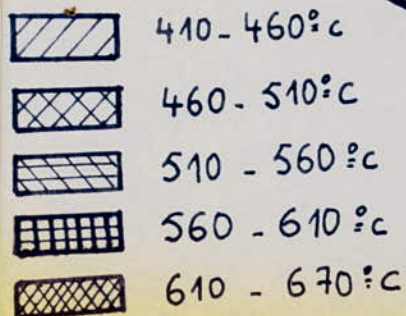 410 - 460°C
460 - 510°C
510 - 560°C
560 - 610°C
610 - 670°C